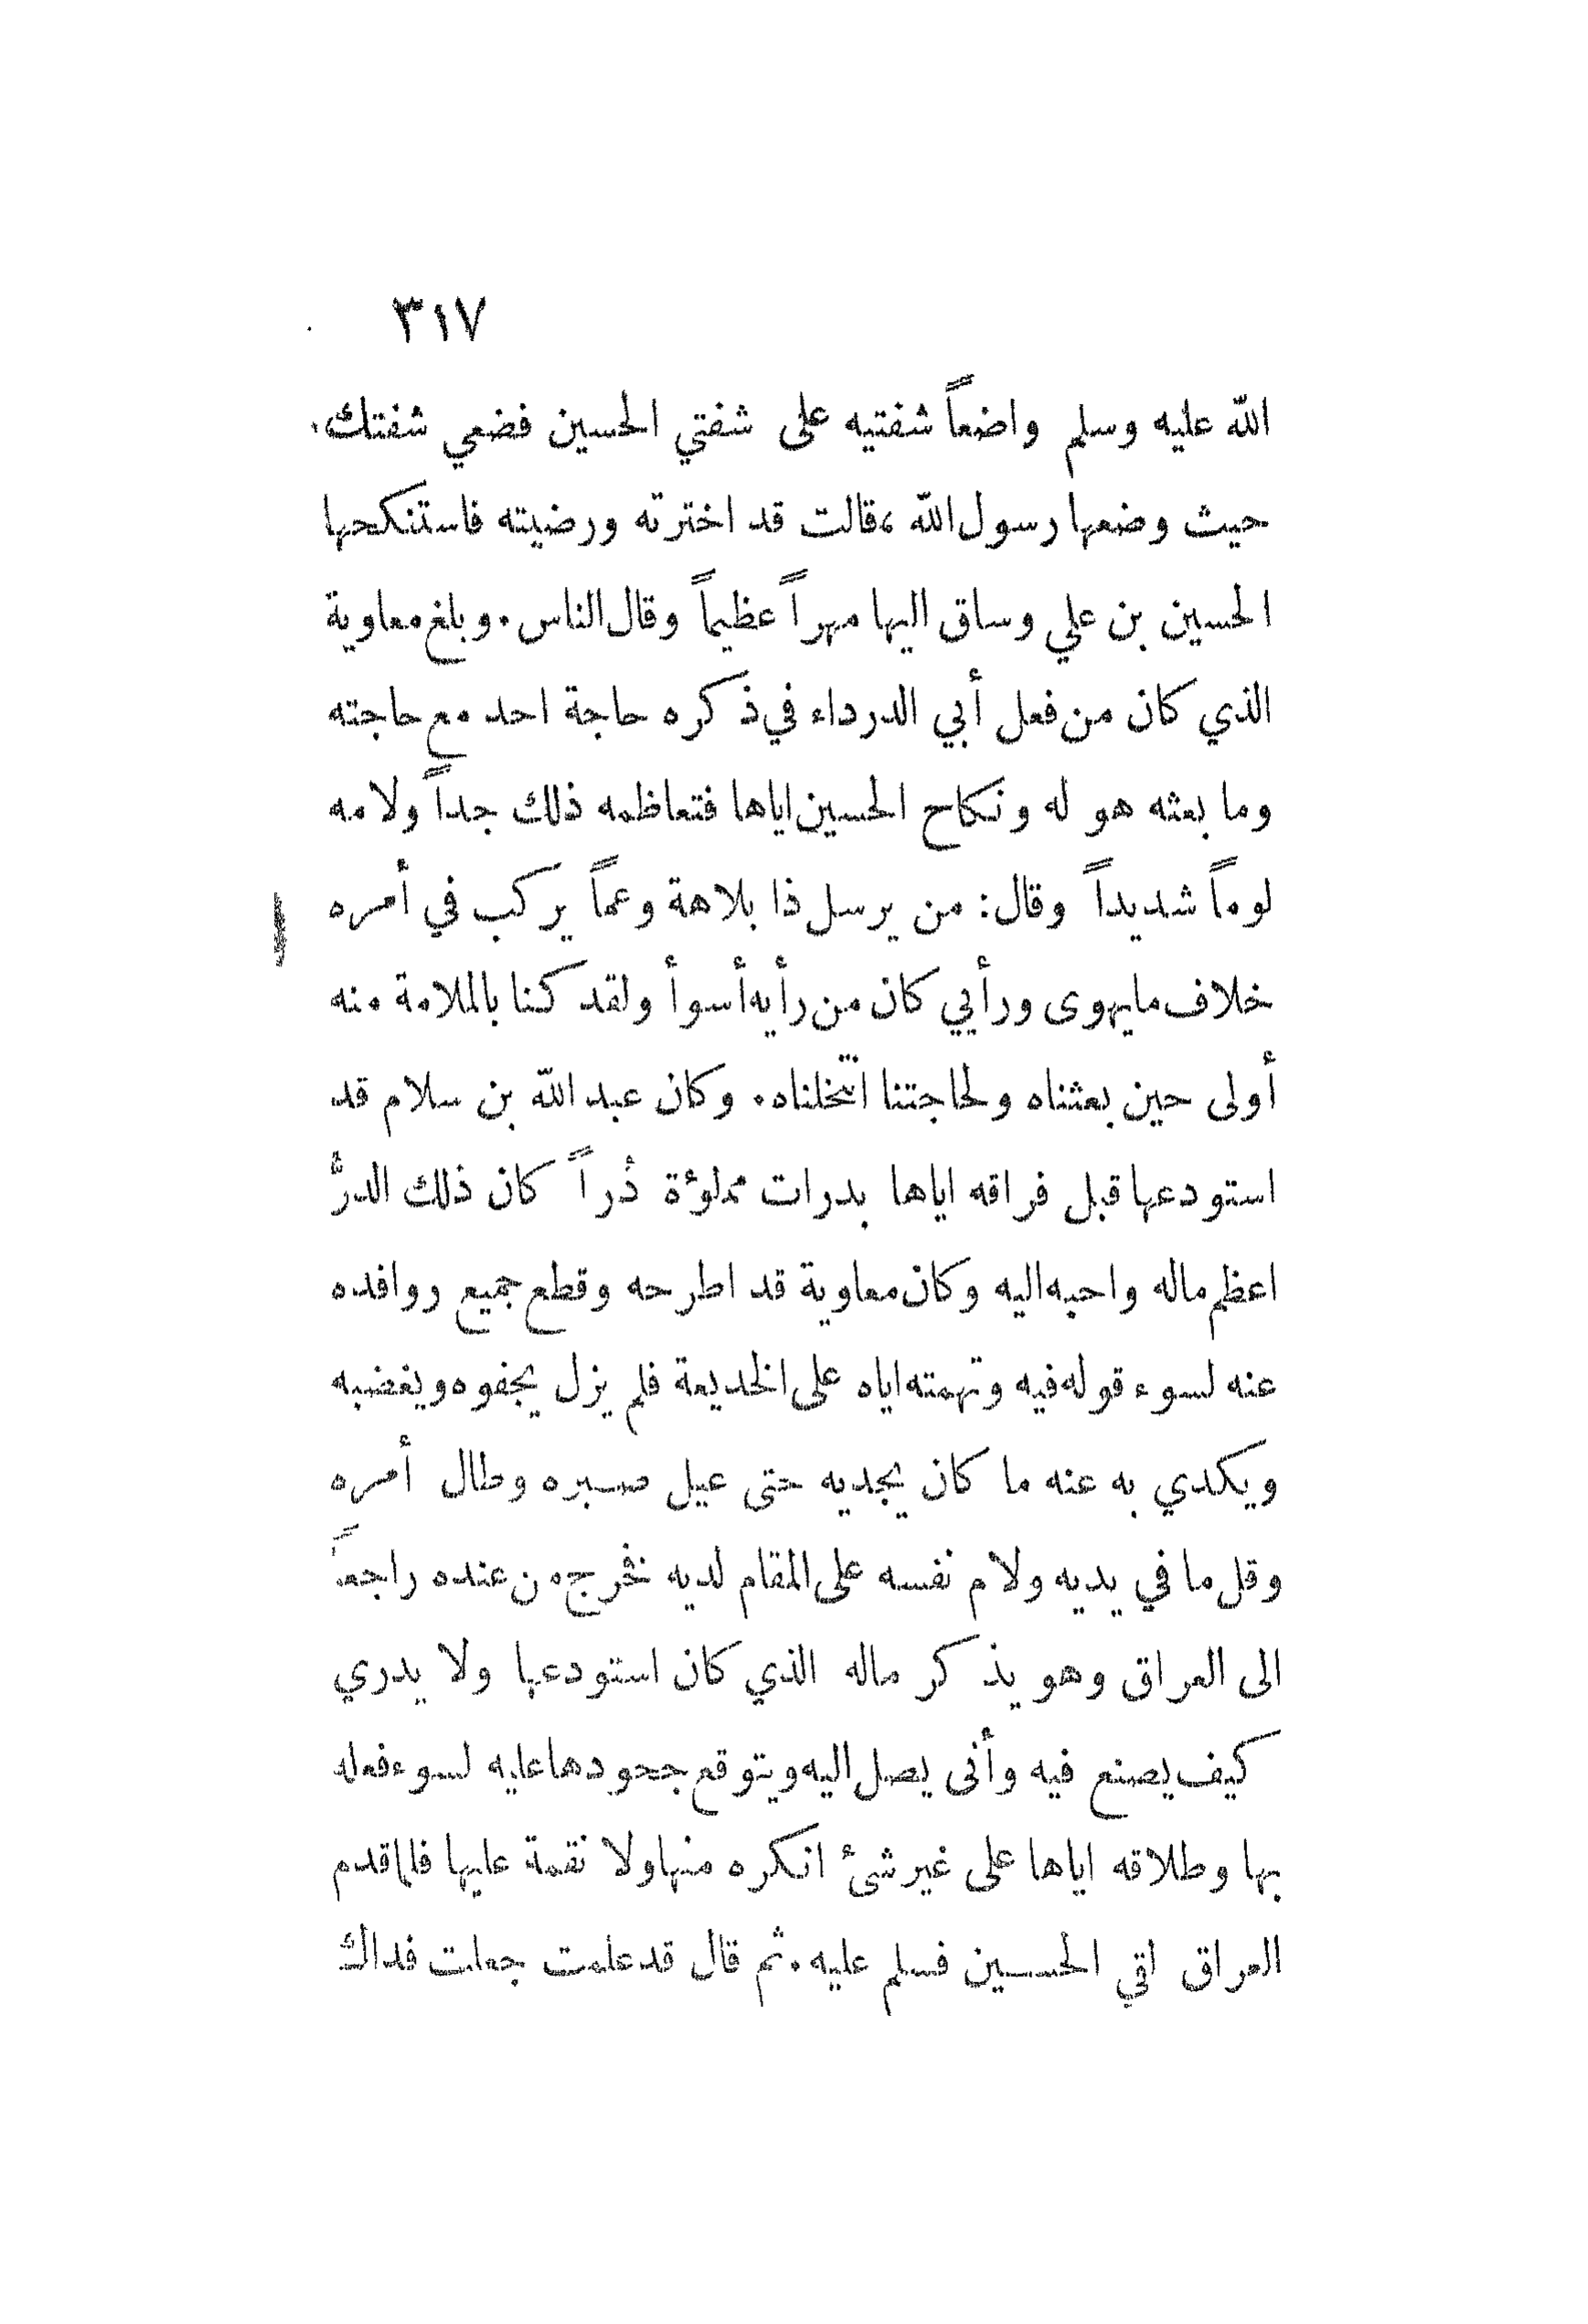 ٣١٧
الله عليه وسلم واضعاً شفتيه على شفتي الحسين فضعي شفتك
حيث وضعها رسول الله ،قالت قد اخترته ورضيته فاستنكحها
الحسين بن علي وساق اليها مهراً عظيماً وقال الناس . وبلغ معاوية
الذي كان من فعل أبي الدرداء في ذكره حاجة احد مع حاجته
وما بعثه هو له ونكاح الحسين اياها فتعاظمه ذلك جداً ولامه
لوماً شديداً وقال: من يرسل ذا بلاهة وعماً يركب في أمره
خلاف مايهوى ورأيي كان من رأيه أسوأ ولقد كنا بالملامة منه
أولى حين بعثناه ولحاجتنا انتخلناه. وكان عبد الله بن سلام قد
استودعها قبل فراقه اياها بدرات مملوؤة دُراً كان ذلك الدرُّ
اعظم ماله واحبه اليه وكان معاوية قد اطرحه وقطع جميع روافده
عنه لسوء قوله فيه وتهمته اياه على الخديعة فلم يزل يجفوه ويغضبه
ويكدي به عنه ما كان يجديه حتى عيل صبره وطال أمره
وقل ما في يديه ولام نفسه على المقام لديه فخرج من عنده راجعاً
الى العراق وهو يذكر ماله الذي كان استودعها ولا يدري
كيف يصنع فيه وأنى يصل اليه ويتوقع جحودها عليه لسوء فعله
بها وطلاقه اياها على غير شئ انكره منها ولا نقمة عليها فلما قدم
العراق لقي الحسين فسلم عليه. ثم قال قد علمت جعلت فداك